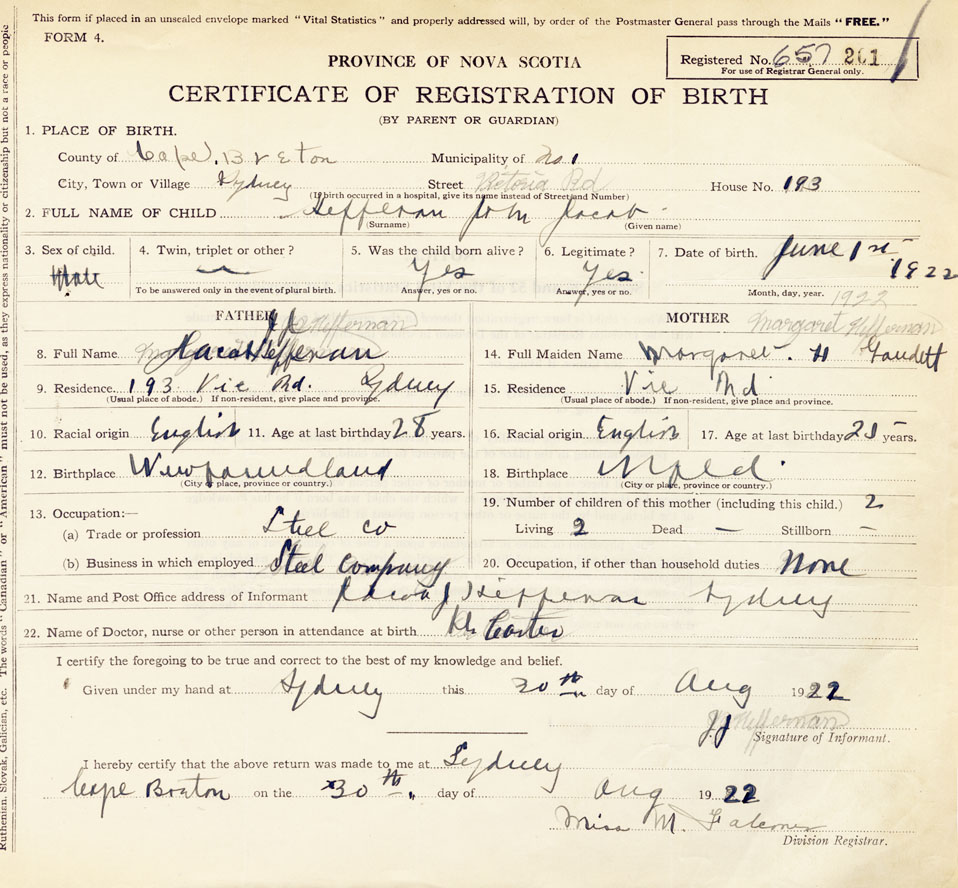 This form if placed in an unsealed envelope marked "Vital Statistics" and properly addressed will, by order of the Postmaster General pass through the Mails "FREE."
FORM 4.
Registered No. 657 201
For use of Registrar General only.
PROVINCE OF NOVA SCOTIA
CERTIFICATE OF REGISTRATION OF BIRTH
(BY PARENT OR GUARDIAN)
1. PLACE OF BIRTH.
County of Cape Breton Municipality of No. 1
City, Town or Village Sydney Street Victoria Rd House No. 193
(If birth occurred in a hospital, give its name instead of Street and Number)
2. FULL NAME OF CHILD Heffernan John Jacob
(Surname) (Given name)
3. Sex of child. 4. Twin, triplet or other? 5. Was the child born alive? 6. Legitimate? 7. Date of birth. June 1st 1922
Male — Yes Yes
To be answered only in the event of plural birth. Answer, yes or no. Answer, yes or no. Month, day, year. 1922
FATHER J J Heffernan MOTHER Margaret Heffernan
8. Full Name Jacob Heffernan 14. Full Maiden Name Margaret. H Gaudett
9. Residence 193 Vic Rd. Sydney 15. Residence Vic Rd
(Usual place of abode.) If non-resident, give place and province. (Usual place of abode.) If non-resident, give place and province.
10. Racial origin English 11. Age at last birthday 28 years. 16. Racial origin English 17. Age at last birthday 25 years.
12. Birthplace Newfoundland 18. Birthplace Nfld.
(City or place, province or country.) (City or place, province or country.)
19. Number of children of this mother (including this child.) 2
13. Occupation:—
(a) Trade or profession Steel Co Living 2 Dead — Stillborn —
(b) Business in which employed Steel Company 20. Occupation, if other than household duties None
21. Name and Post Office address of Informant Jacob J Heffernan Sydney
22. Name of Doctor, nurse or other person in attendance at birth
I certify the foregoing to be true and correct to the best of my knowledge and belief.
Given under my hand at Sydney this 30th day of Aug 1922
J J Heffernan
Signature of Informant.
I hereby certify that the above return was made to me at Sydney
Cape Breton on the 30th day of Aug 1922
Miss M. Falconer
Division Registrar.
Ruthenian, Slovak, Galician, etc. The words "Canadian" or "American" must not be used, as they express nationality or citizenship but not a race or people